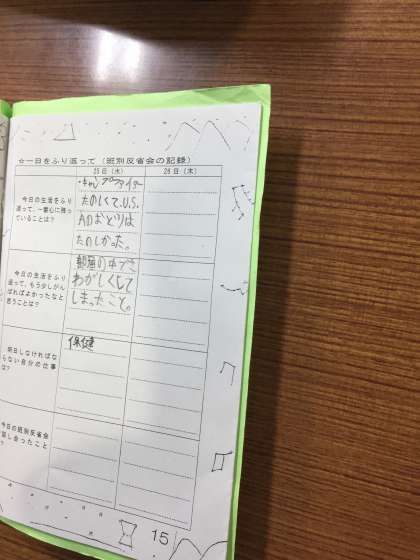 ☆一日をふり返って（班別反省会の記録）
25日（水） 26日（木）
今日の生活をふり
返って、一番心に残っ
ていることは？
キャンプファイヤー
たのしくて、U.S.
Aのおどりは
たのしかった。
今日の生活をふり
返って、もう少しがん
ばればよかったなと
思うことは？
部屋の中で
わがしくして
しまったこと。
明日しなければな
らない自分の仕事
は？
保健
今日の班別反省会
話し合ったこと
？
15